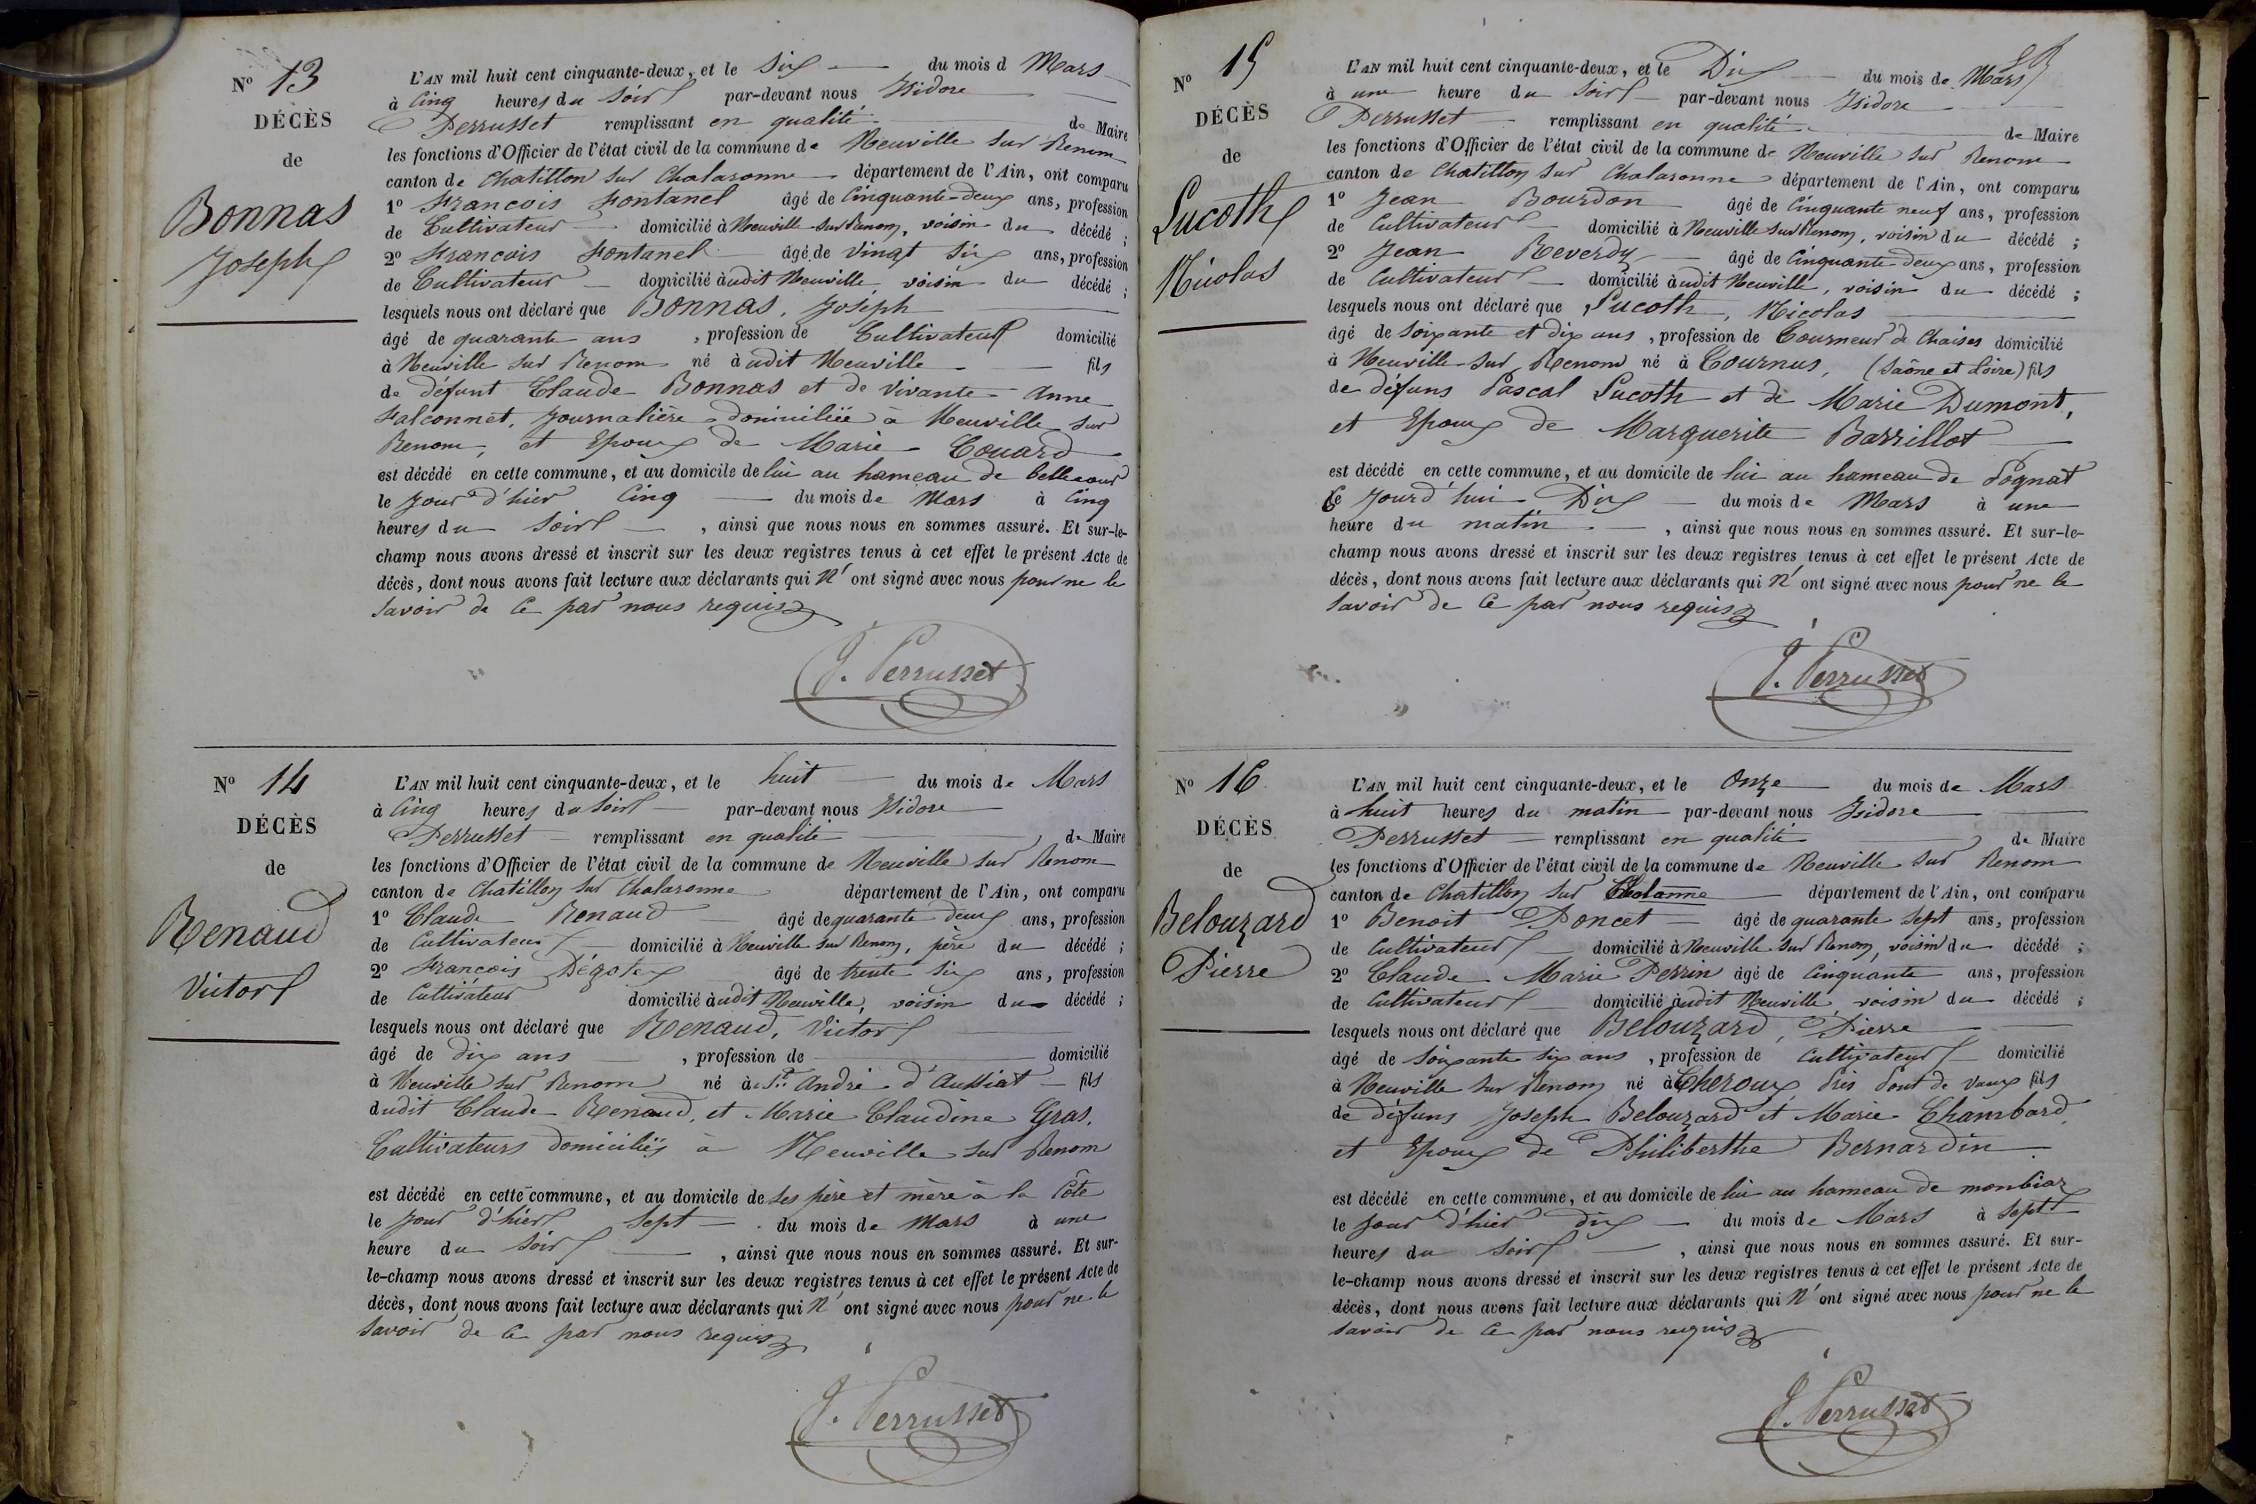 N° 13
DÉCÈS
de
Bonnas
Joseph
L'AN mil huit cent cinquante-deux, et le Six du mois d Mars
à Cinq heures du Soir par-devant nous Isidore
Perrusset remplissant en qualité de Maire
les fonctions d'Officier de l'état civil de la commune de Neuville sur Renom
canton de Chatillon sur Chalaronne département de l'Ain, ont comparu
1° Francois Fontanel âgé de Cinquante-deux ans, profession
de Cultivateur domicilié à Neuville sur Renom, voisin du décédé ;
2° Francois Fontanel âgé de Vingt Six ans, profession
de Cultivateur domicilié àudit Neuville, voisin du décédé ;
lesquels nous ont déclaré que Bonnas, Joseph
âgé de quarante ans, profession de Cultivateur domicilié
à Neuville sur Renom né àudit Neuville fils
de défunt Claude Bonnas et de Vivante Anne
Falconnet, Journalière domiciliée à Neuville sur
Renom, et Epoux de Marie Couard
est décédé en cette commune, et au domicile de lui au hameau de bellecour
le Jour d'hier Cinq du mois de Mars à Cinq
heures du Soir, ainsi que nous nous en sommes assuré. Et sur-le-
champ nous avons dressé et inscrit sur les deux registres tenus à cet effet le présent Acte de
décès, dont nous avons fait lecture aux déclarants qui n'ont signé avec nous pour ne le
Savoir de Ce par nous requis
J. Perrusset
N° 14
DÉCÈS
de
Renaud
Victor
L'AN mil huit cent cinquante-deux, et le huit du mois de Mars
à Cinq heures du Soir par-devant nous Isidore
Perrusset remplissant en qualité de Maire
les fonctions d'Officier de l'état civil de la commune de Neuville sur Renom
canton de Chatillon sur Chalaronne département de l'Ain, ont comparu
1° Claude Renaud âgé de quarante deux ans, profession
de Cultivateur domicilié à Neuville sur Renom, père du décédé ;
2° Francois Dégotex âgé de trente Six ans, profession
de Cultivateur domicilié àudit Neuville, voisin du décédé ;
lesquels nous ont déclaré que Renaud, Victor
âgé de dix ans, profession de domicilié
à Neuville sur Renom né à St. André d'Aussiat fils
dudit Claude Renaud, et Marie Claudine Gras,
Cultivateurs domiciliés à Neuville sur Renom
est décédé en cette commune, et au domicile de Ses père et mère à la Côte
le Jour d'hier Sept du mois de Mars à une
heure du Soir, ainsi que nous nous en sommes assuré. Et sur-
le-champ nous avons dressé et inscrit sur les deux registres tenus à cet effet le présent Acte de
décès, dont nous avons fait lecture aux déclarants qui n'ont signé avec nous pour ne le
Savoir de Ce par nous requis
J. Perrusset
N° 15
DÉCÈS
de
Lucoth
Nicolas
L'AN mil huit cent cinquante-deux, et le Dix du mois de Mars
à une heure du Soir par-devant nous Isidore
Perrusset remplissant en qualité de Maire
les fonctions d'Officier de l'état civil de la commune de Neuville sur Renom
canton de Chatillon sur Chalaronne département de l'Ain, ont comparu
1° Jean Bourdon âgé de Cinquante neuf ans, profession
de Cultivateur domicilié à Neuville sur Renom, voisin du décédé ;
2° Jean Reverdy âgé de Cinquante deux ans, profession
de Cultivateur domicilié àudit Neuville, voisin du décédé ;
lesquels nous ont déclaré que Lucoth, Nicolas
âgé de Soixante et dix ans, profession de Tourneur de Chaises domicilié
à Neuville sur Renom né à Tournus, (Saône et Loire) fils
de défuns Pascal Lucoth et de Marie Dumont,
et Epoux de Marguerite Barrillot
est décédé en cette commune, et au domicile de lui au hameau de Pognat
Ce Jourd'hui Dix du mois de Mars à une
heure du matin, ainsi que nous nous en sommes assuré. Et sur-le-
champ nous avons dressé et inscrit sur les deux registres tenus à cet effet le présent Acte de
décès, dont nous avons fait lecture aux déclarants qui n'ont signé avec nous pour ne le
Savoir de Ce par nous requis
J. Perrusset
N° 16
DÉCÈS
de
Belouzard
Pierre
L'AN mil huit cent cinquante-deux, et le Onze du mois de Mars
à huit heures du matin par-devant nous Isidore
Perrusset remplissant en qualité de Maire
les fonctions d'Officier de l'état civil de la commune de Neuville sur Renom
canton de Chatillon sur Cholanne département de l'Ain, ont comparu
1° Benoit Poncet âgé de quarante Sept ans, profession
de Cultivateur domicilié à Neuville sur Renom, voisin du décédé ;
2° Claude Marie Perrin âgé de Cinquante ans, profession
de Cultivateur domicilié àudit Neuville, voisin du décédé ;
lesquels nous ont déclaré que Belouzard, Pierre
âgé de Soixante Six ans, profession de Cultivateur domicilié
à Neuville sur Renom né à Cheroux Près Pont de Vaux fils
de défuns Joseph Belouzard et Marie Chambard,
et Epoux de Philiberthe Bernardin.
est décédé en cette commune, et au domicile de lui au hameau de monbiar
le Jour d'hier dix du mois de Mars à Sept
heures du Soir, ainsi que nous nous en sommes assuré. Et sur-
le-champ nous avons dressé et inscrit sur les deux registres tenus à cet effet le présent Acte de
décès, dont nous avons fait lecture aux déclarants qui n'ont signé avec nous pour ne le
Savoir de Ce par nous requis
J. Perrusset